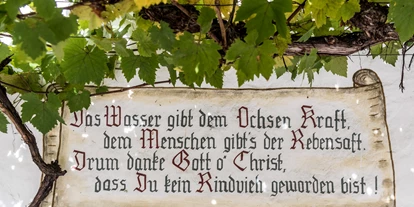 Das Wasser gibt dem Ochsen Kraft,
dem Menschen gibt's der Rebensaft.
Drum danke Gott o' Christ,
dass Du kein Rindvieh geworden bist !